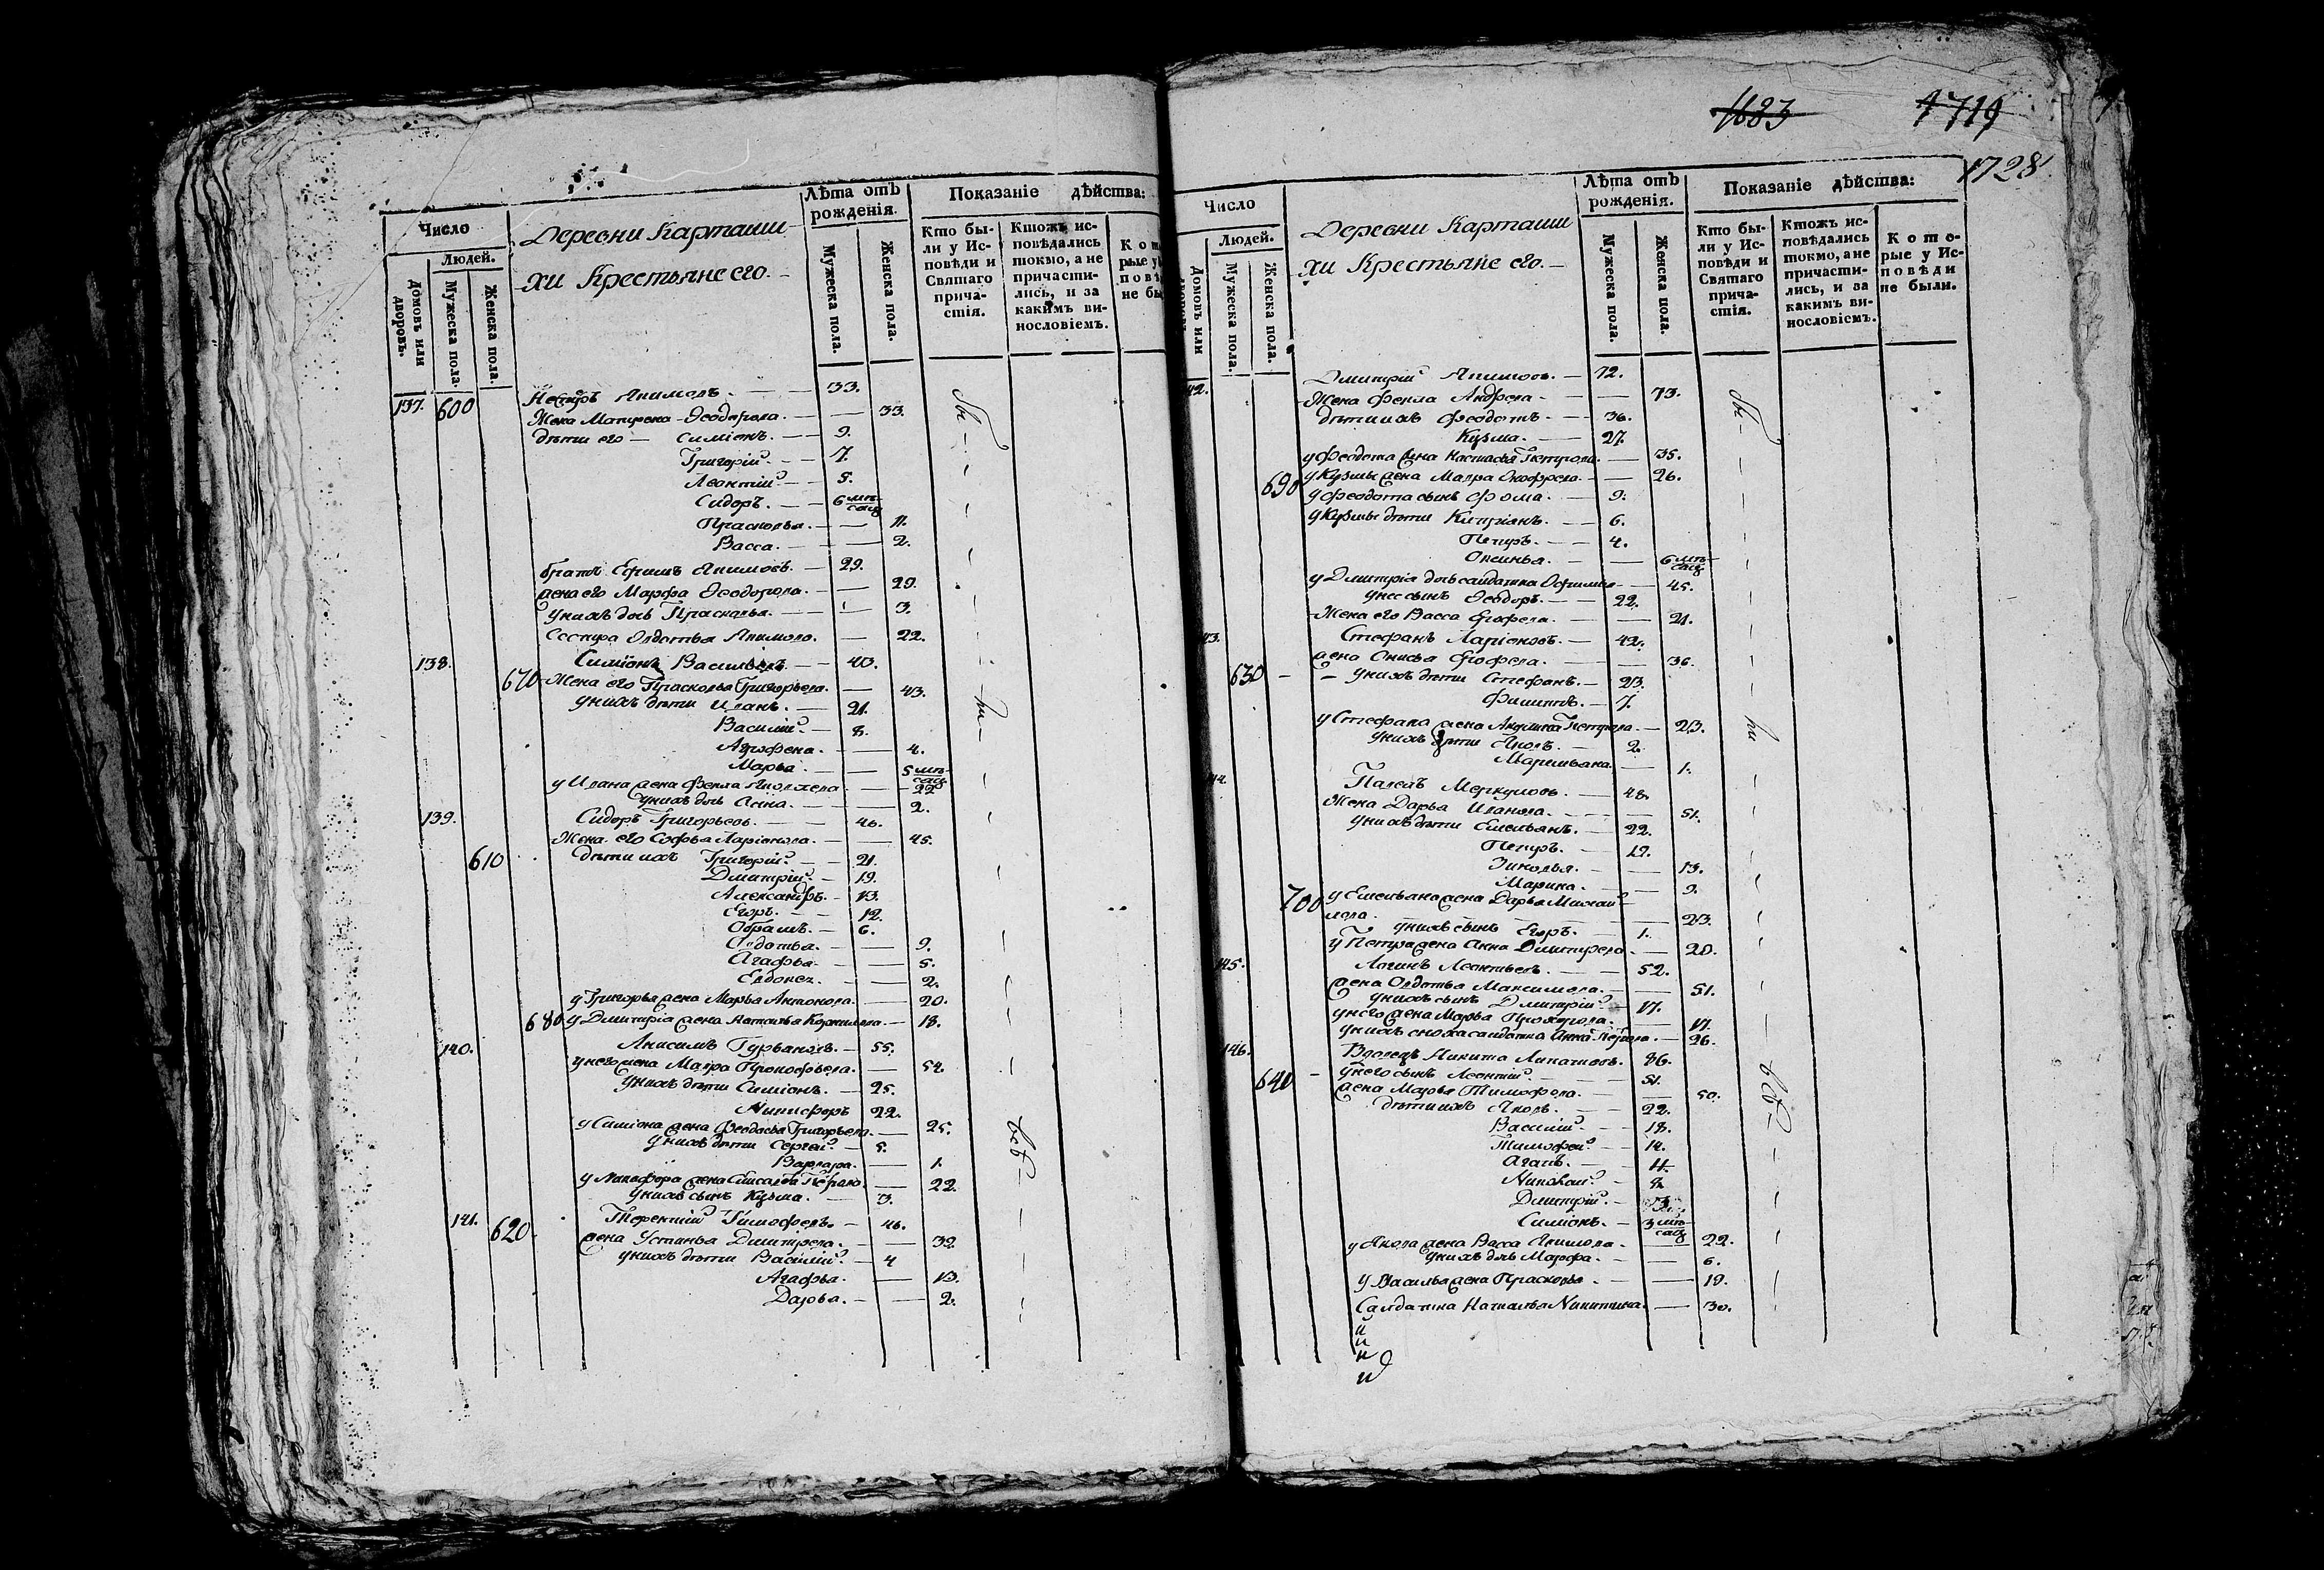 Число
Людей.
Домовъ или дворовъ.
Мужеска пола.
Женска пола.
Деревни Карташи-
хи Крестьяне его.
Лѣта отъ
рожденія.
Мужеска пола.
Женска пола.
Показаніе дѣйства:
Кто бы-
ли у Ис-
повѣди и
Святаго
прича-
стія.
Ктожъ ис-
повѣдались
токмо, а не
причасти-
лись, и за
какимъ ви-
нословіемъ.
137. 600 Якимовъ. 33.
Жена Матрена Ѳеодорова. 33.
дѣти его Симіонъ. 9.
Григорій. 7.
Леонтій. 5.
Сидоръ. 6 мѣ-
сяц
Прасковья. 11.
Васса. 2.
братъ Ефимъ Якимовъ. 29.
жена его Марфа Ѳеодорова. 29.
у нихъ дочь Прасковья. 3.
Сестра Авдотья Якимова. 22.
138. Симіонъ Васильевъ 43.
670 Жена его Прасковья Григорьева. 43.
у нихъ дѣти Иванъ. 21.
Василій. 8.
Агрофена. 4.
Марья. 5 мѣ-
сяц
у Ивана жена Фекла Яковлева 22
у нихъ дочь Анна. 2.
139. Сидоръ Григорьевъ. 46.
Жена его Софья Ларіонова. 45.
610 дѣти ихъ Григорій. 21.
Дмитрій. 19.
Александръ. 13.
Егоръ. 12.
Обрамъ. 6.
Авдотья. 9.
Агафья. 5.
2.
у Григорья жена Марья Антонова. 20.
680 у Дмитрія жена Наталья Корнилова. 18.
140. Анисимъ Гурьяновъ. 55.
у него жена Мавра Прокофьева. 54.
у нихъ дѣти Симіонъ. 25.
Никифоръ 22.
у Симіона жена Феодосья Григорьева. 25.
у нихъ дѣти Сергей. 5.
Варвара. 1.
у Никифора жена 22.
у нихъ сынъ Кузма. 3.
141. 620. Терентій Тимофеевъ. 46.
жена Устинья Дмитрева. 32
у нихъ дѣти Василій. 4
Агафья. 13.
Дарья. 2.
1683 1719
1728
Число
Людей.
Домовъ или
Мужеска пола.
Женска пола.
Деревни Карташи
хи Крестьяне его.
Лѣта отъ
рожденія.
Мужеска пола.
Женска пола.
Показаніе дѣйства:
Кто бы-
ли у Ис-
повѣди и
Святаго
прича-
стія.
Ктожъ ис-
повѣдались
токмо, а не
причасти-
лись, и за
какимъ ви-
нословіемъ.
К о т о-
рые у Ис-
п о в ѣ д и
не были.
42. Дмитрій Якимовъ. 72.
Жена Фекла Андрева 73.
дѣти ихъ Феодотъ 36.
Кузма. 27.
у Феодота жена Настасья Петрова. 35.
690 у Кузмы жена Мавра 26.
у Феодота сынъ Фома. 9.
у Кузмы дѣти Кипріянъ. 6.
Петръ. 4.
Оксинья. 6 мѣ-
сяц
у Дмитрія дочь салдатка 45.
у нее сынъ Ѳеодоръ. 22.
Жена его Васса Ерофева. 21.
43. Стефанъ Ларіоновъ. 42.
жена Онисья Ерофева. 36.
630 у нихъ дѣти Стефанъ. 23.
Филиппъ. 7.
у Стефана жена Акулина Петрова. 23.
у нихъ дѣти Яковъ. 2.
Маримьяна. 1.
44. Павелъ Меркуловъ. 48.
Жена Дарья Иванова. 51.
у нихъ дѣти Емельянъ. 22.
Петръ. 19.
Зиновья. 13.
Марина. 9.
700 у Емельяна жена Дарья Михай-
лова. 23.
у нихъ сынъ Егоръ. 1.
у Петра жена Анна Дмитрева. 20.
145. Логинъ Леонтьевъ. 52.
жена Авдотья Максимова. 51.
у нихъ сынъ Дмитрій. 17.
у него жена Марья Прохорова. 17.
у нихъ сноха салдатка Анна 26.
146. Вдовецъ Никита 86.
640 у него сынъ Леонтій. 51.
жена Марья Тимофева. 50.
дѣти ихъ Яковъ. 22.
Василій. 18.
Тимофей 14.
Агапъ. 11.
Николай. 8.
Дмитрій. 3.
Симіонъ. 3 мѣ-
сяц
у Якова жена Васса Якимова. 22.
у нихъ дочь Марфа. 6.
у Василья жена Прасковья 19.
Салдатка Наталья Никитина. 30.